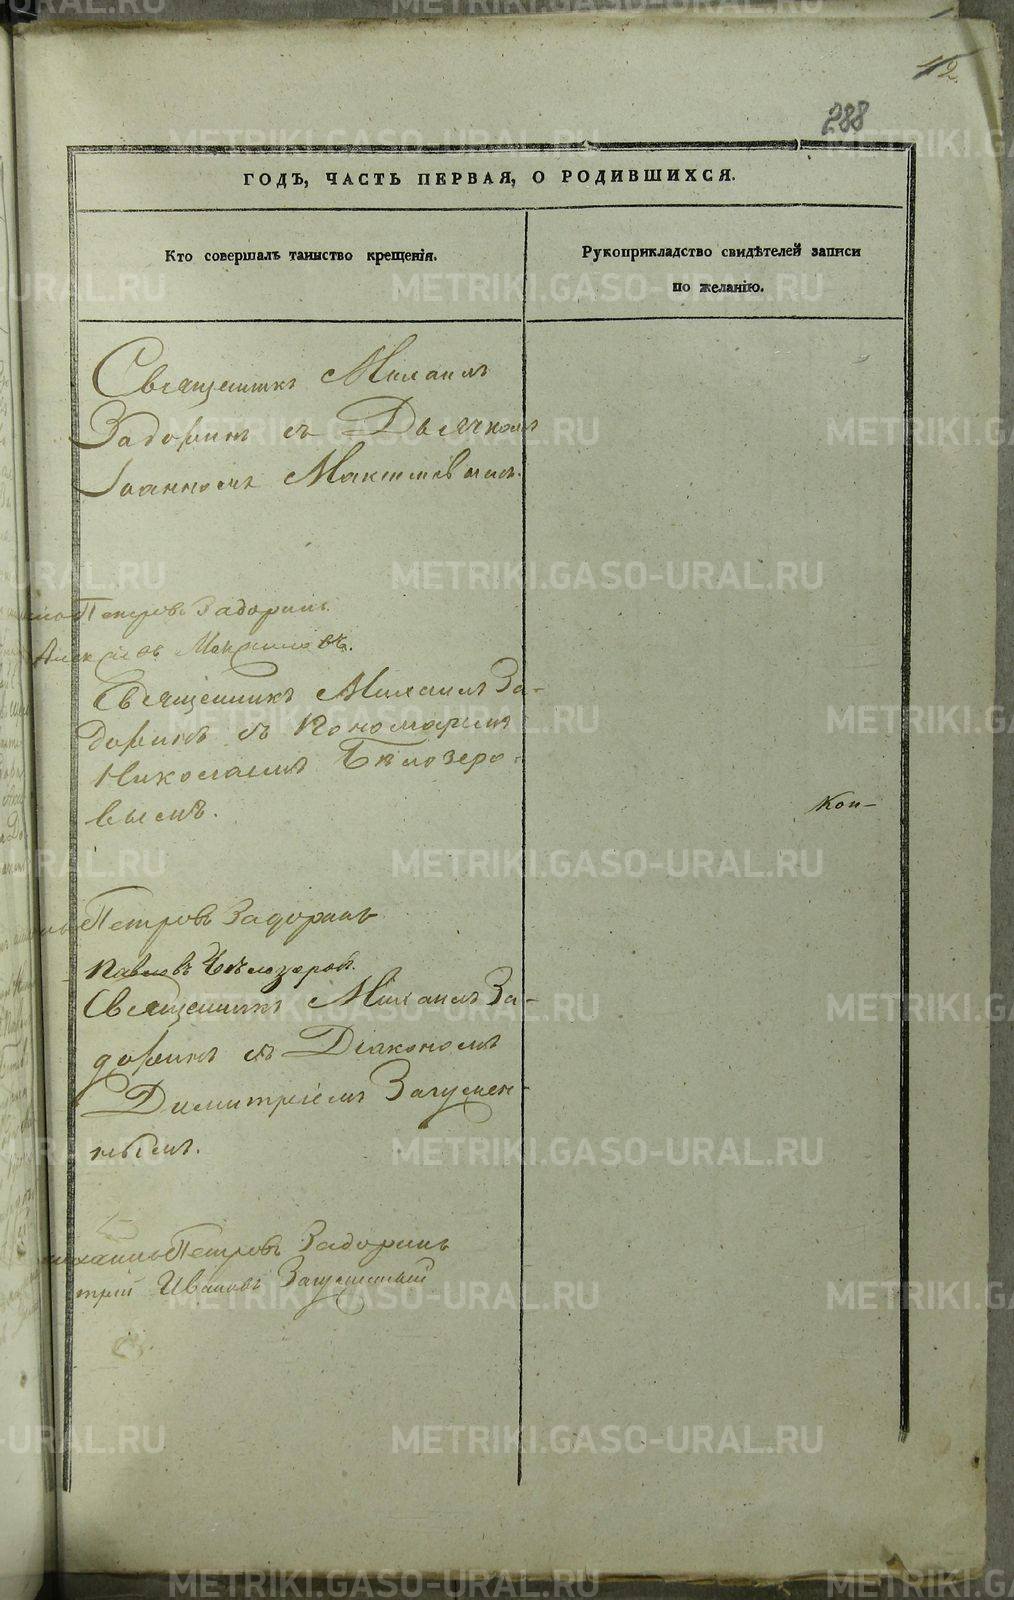 12
288
ГОДЪ, ЧАСТЬ ПЕРВАЯ, О РОДИВШИХСЯ.
Кто совершалъ таинство крещенія.
Рукоприкладство свидѣтелей записи
по желанію.
Священникъ Михаилъ
Задоринъ съ Дьячкомъ
Іоанномъ
Петровъ Задоринъ
Священникъ Михаилъ За-
доринъ съ Пономаремъ
Николаемъ Бѣлозеро-
вымъ.
Кон-
Петровъ Задоринъ
Павловъ
Священникъ Михаилъ За-
доринъ съ Діакономъ
Димитріемъ Загумен-
нымъ.
Петровъ Задоринъ
Ивановъ Загуменный
METRIKI.GASO-URAL.RU